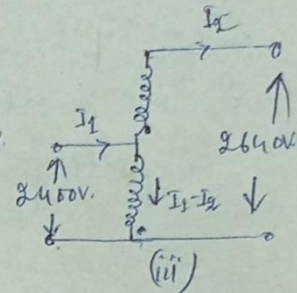 I2
I1
2400V.
2640V.
I1-I2
(iii)